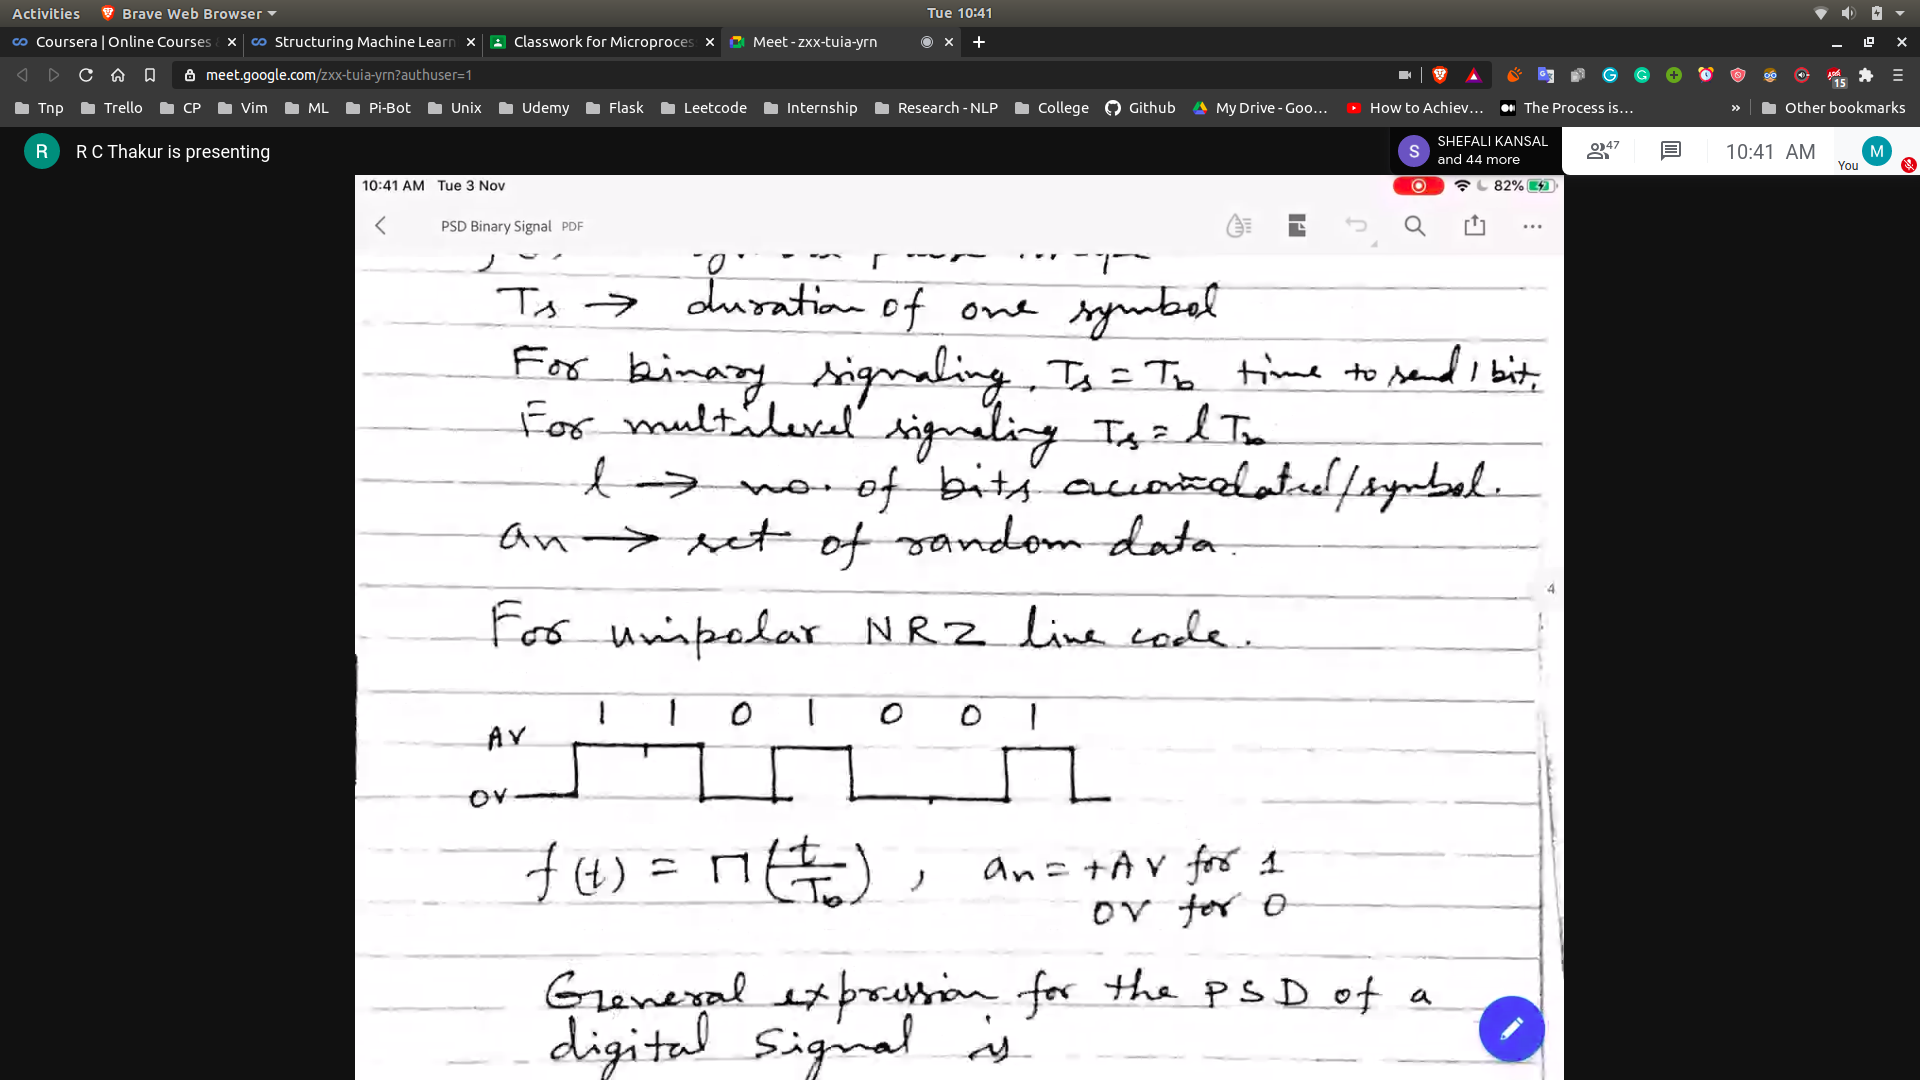 Activities Brave Web Browser Tue 10:41
Coursera | Online Courses Structuring Machine Learn Classwork for Microproces Meet - zxx-tuia-yrn
meet.google.com/zxx-tuia-yrn?authuser=1 15
Tnp Trello CP Vim ML Pi-Bot Unix Udemy Flask Leetcode Internship Research - NLP College Github My Drive - Goo... How to Achiev... The Process is... » Other bookmarks
R R C Thakur is presenting
S SHEFALI KANSAL
and 44 more
47 10:41 AM You M
10:41 AM Tue 3 Nov 82%
PSD Binary Signal PDF
Ts → duration of one symbol
For binary signaling, Ts = Tb time to send 1 bit.
For multilevel signaling Ts = l Tb
l → no. of bits accomodated/symbol.
an → set of random data.
4
For unipolar NRZ line code.
1 1 0 1 0 0 1
AV
0V
f(t) = Π(t/Tb) , an = +AV for 1
0V for 0
General expression for the PSD of a
digital Signal is